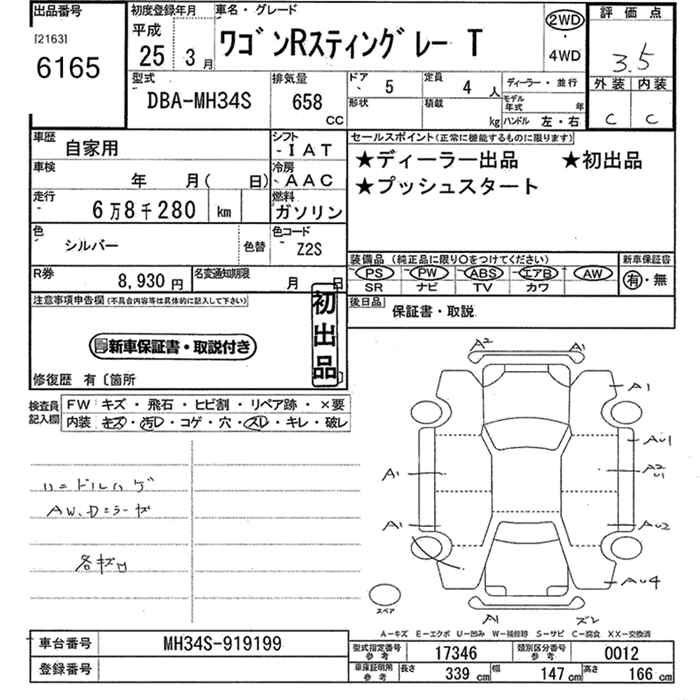 出品番号
[2163]
6165
初度登録年月
平成
25 3月
車名・グレード
ワゴンRスティングレー T
2WD
・
4WD
評価点
3.5
外装 内装
C C
型式
DBA-MH34S
排気量
658
CC
ドア
5
定員
4 人
形状
積載
kg
ディーラー・並行
モデル年式 年
ハンドル 左・右
車歴
自家用
シフト
-IAT
車検
年 月( 日)
冷房
AAC
走行
6万8千280 km
燃料
ガソリン
色
シルバー
色替
色コード
Z2S
R券
8,930 円
名変通知期限
月 日
セールスポイント(正常に機能するものに限ります)
★ディーラー出品 ★初出品
★プッシュスタート
装備品 (純正品に限り○をつけてください)
PS PW ABS エアB AW
SR ナビ TV カワ
新車保証書
有・無
後日品
保証書・取説
注意事項申告欄(不具合内容等は具体的に記入して下さい)
新車保証書・取説付き
初出品
修復歴 有〔箇所 〕
検査員記入欄
FW キズ・飛石・ヒビ割・リペア跡・×要
内装 キズ・汚レ・コゲ・穴・スレ・キレ・破レ
ハンドルハゲ
AW、Dミラーキズ
各キズ凹
A2 A1
A1
AU1
A1
A2
U1
A1
AU2
AU4
A1 ズレ
スペア
A-キズ E-エクボ U-凹み W-補修跡 S-サビ C-腐食 XX-交換済
車台番号
MH34S-919199
登録番号
型式指定番号 参考
17346
類別区分番号 参考
0012
車庫証明用 参考
長さ 339 cm 幅 147 cm 高さ 166 cm